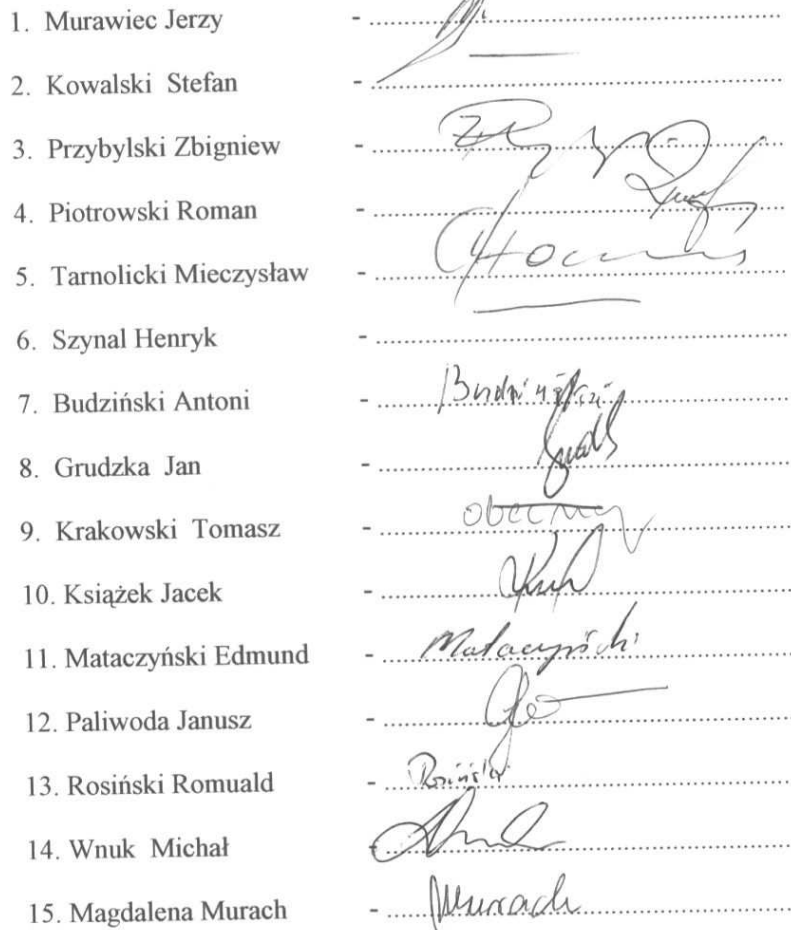 1. Murawiec Jerzy -
2. Kowalski Stefan -
3. Przybylski Zbigniew -
4. Piotrowski Roman -
5. Tarnolicki Mieczysław -
6. Szynal Henryk -
7. Budziński Antoni - Budziński
8. Grudzka Jan -
9. Krakowski Tomasz - obecny
10. Książek Jacek -
11. Mataczyński Edmund - Mataczyński
12. Paliwoda Janusz -
13. Rosiński Romuald - Rosiński
14. Wnuk Michał -
15. Magdalena Murach - Murach